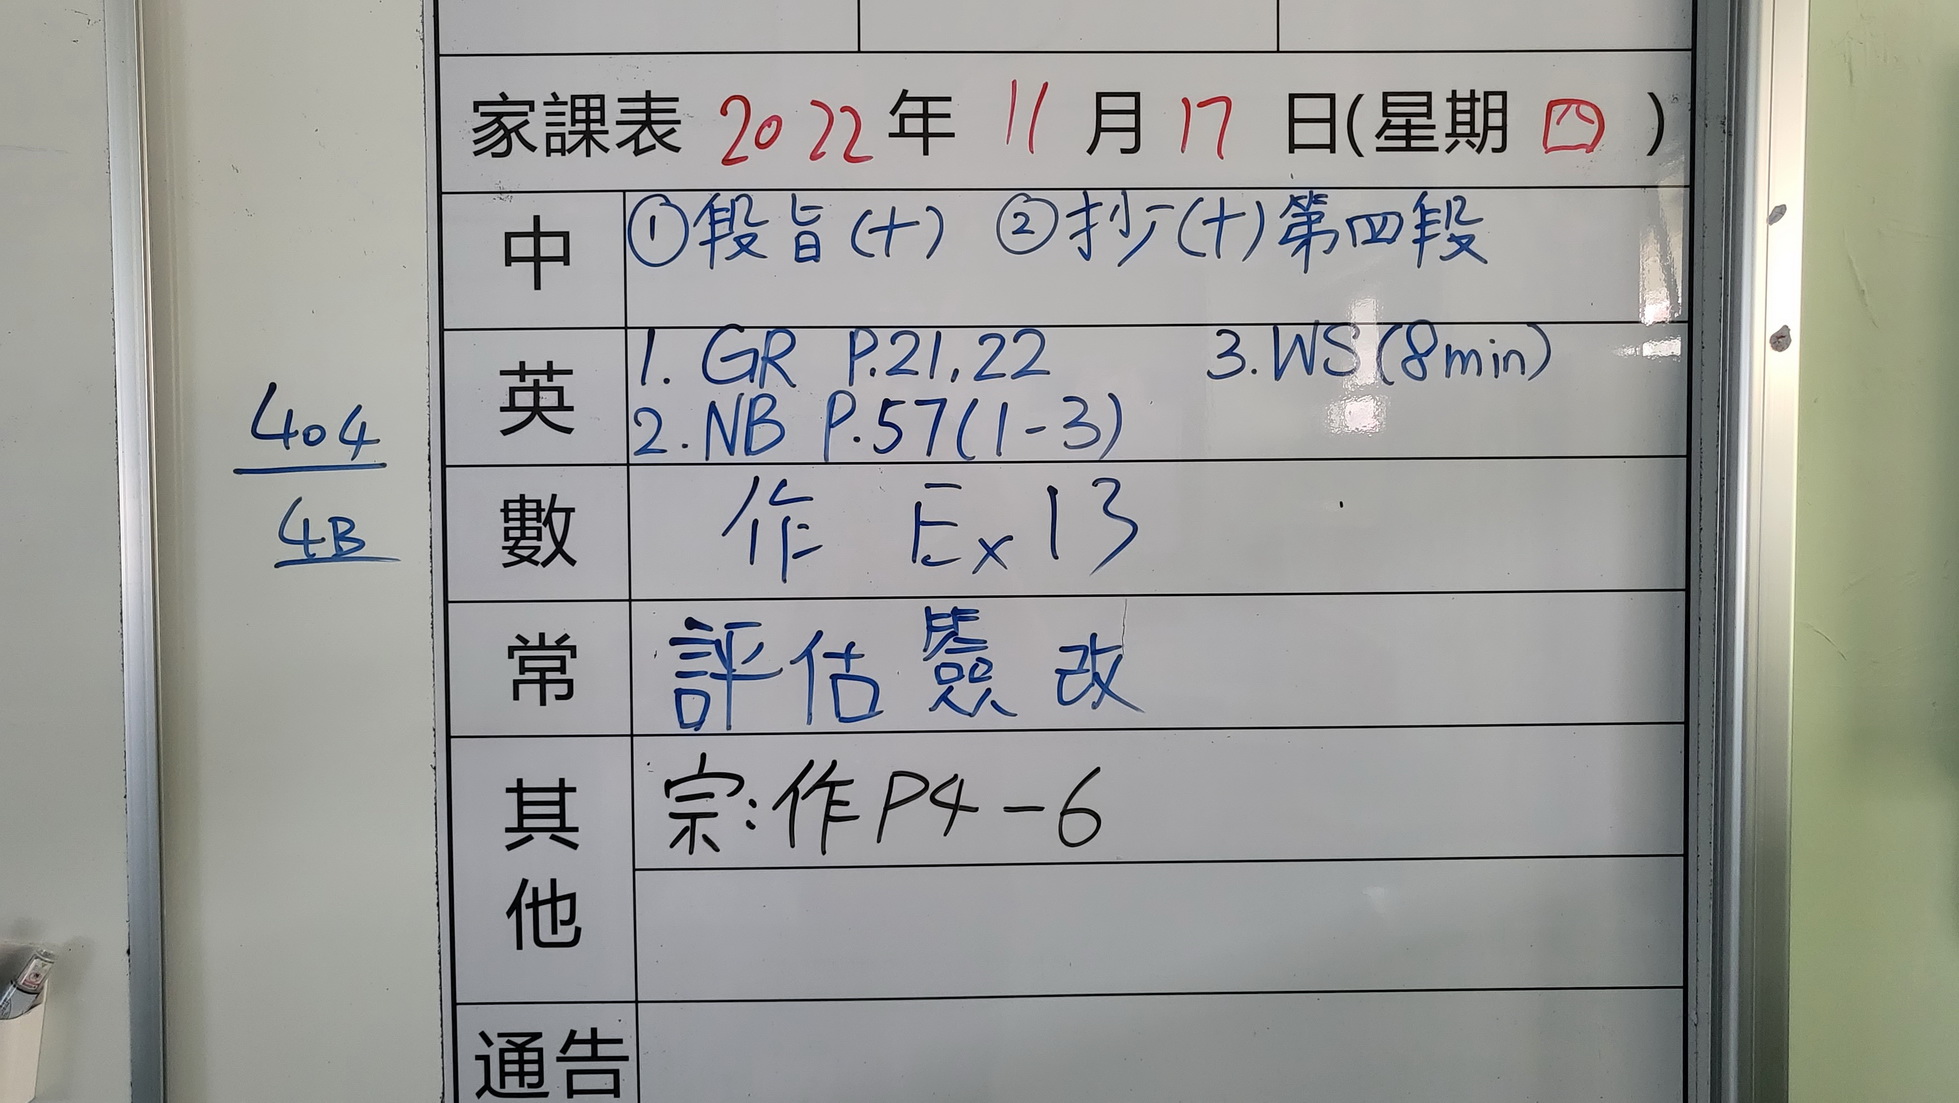 家課表 2022年 11月17日(星期四)
中 ①段旨(十) ②抄(十)第四段
英 1. GR P.21,22 3.WS(8min)
2.NB P.57(1-3)
404
4B
數 作 Ex13
常 評估簽改
其他 宗:作P4-6
通告